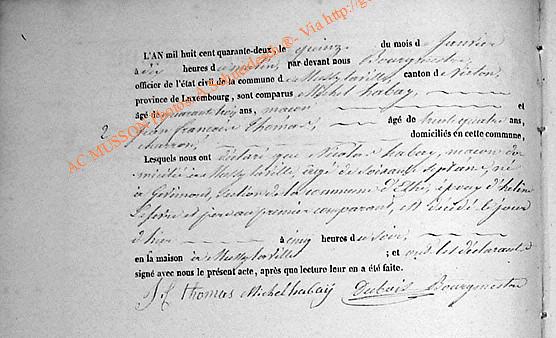 L'AN mil huit cent quarante-deux, le quinze du mois de Janvier
à dix heures du matin, par devant nous Bourgmestre,
officier de l'état civil de la commune de Mussy la ville, canton de Virton,
province de Luxembourg, sont comparus Michel habay,
âgé de quarante trois ans, maçon et
2 jean françois thomas, âgé de huit quatre ans,
charron, domiciliés en cette commune,
Lesquels nous ont déclaré que Nicolas habay, maçon do-
micilié à Mussy la ville, âgé de soixante sept ans, né
à Gérimont, section de la commune d'Ethe, époux d'hélène
et père au premier comparant, est décédé le jour
d'hier à cinq heures du soir,
en la maison à Mussy la ville ; et ont les déclarants
signé avec nous le présent acte, après que lecture leur en a été faite.
J f thomas Michel habaÿ Dubois Bourgmestre
AC MUSSON Photos A Schneider ©- Via http://g